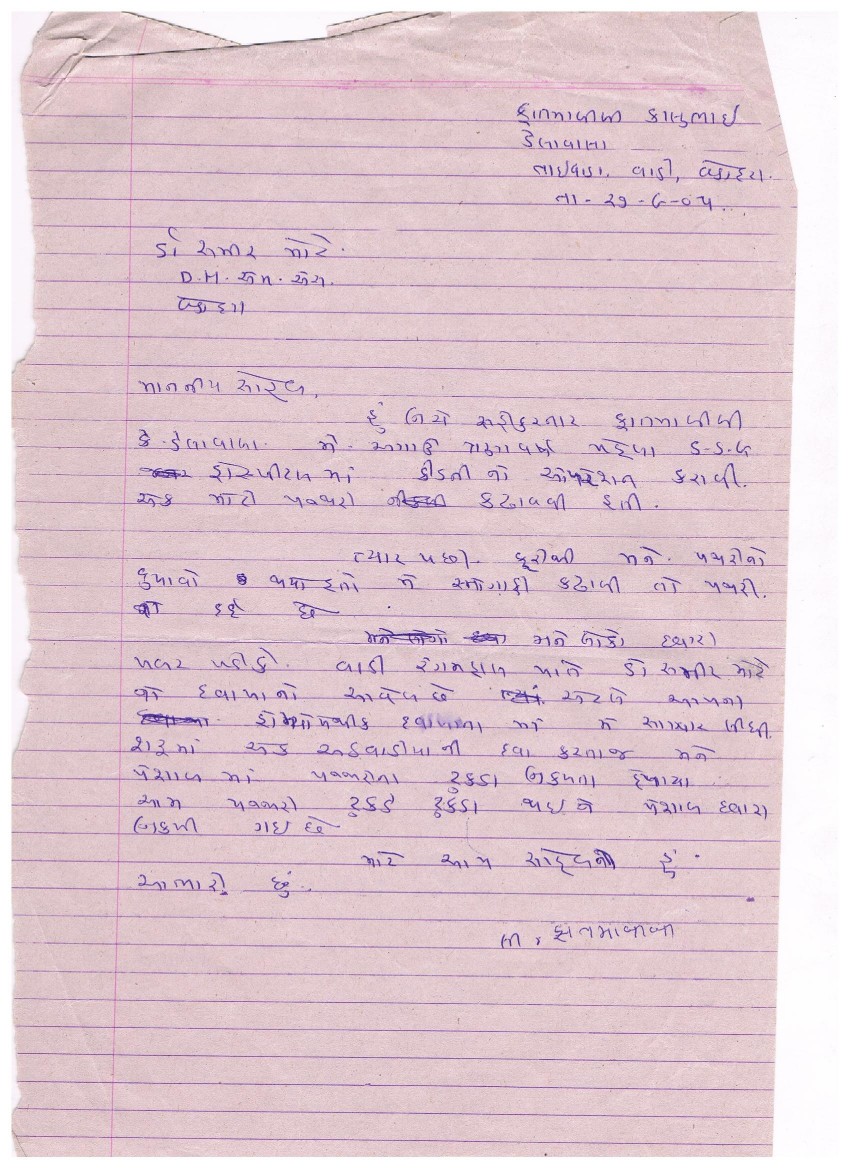 ફાતમાબીબી કાલુભાઇ
કેલાવાલા
તાઇવાડા. વાડી, વડોદરા.
તા - ૨૭ - ૬ - ૦૫
ડૉ સમીર માટે.
D.H. એમ. એસ.
વડોદરા
માનનીય સાહેબ,
હું નીચે સહીકરનાર ફાતમાબીબી
કે. કેલાવાલા. મેં અગાઉ વર્ષ પહેલા S.S.G
હોસ્પીટલ માં કીડની નો ઓપરેશન કરાવી.
એક મોટી પથ્થરી કઢાવવી હતી.
ત્યાર પછી. ફરીથી મને. પથરીનો
દુખાવો થયો હતો મેં કઢાવી તો પથરી.
છે
મને લોકો દ્વારા
ખબર પડીકે. વાડી રંગમહાલ પાસે ડૉ સમીર માટે
નો દવાખાનો આવેલ છે એટલે આપના
હોમીઓપેથીક દવાખાના માં મેં સારવાર લીધી.
શરૂમાં એક અઠવાડીયા ની દવા કરતાજ મને
પેશાબ માં પથ્થરીના ટુકડા નીકળતા દેખાયા
આમ પથ્થરી ટુકડે ટુકડા થઇ ને પેશાબ દ્વારા
નીકળી ગઇ છે
માટે આપ સાહેબની હું
આભારી છું.
લી, ફાતમાબીબી